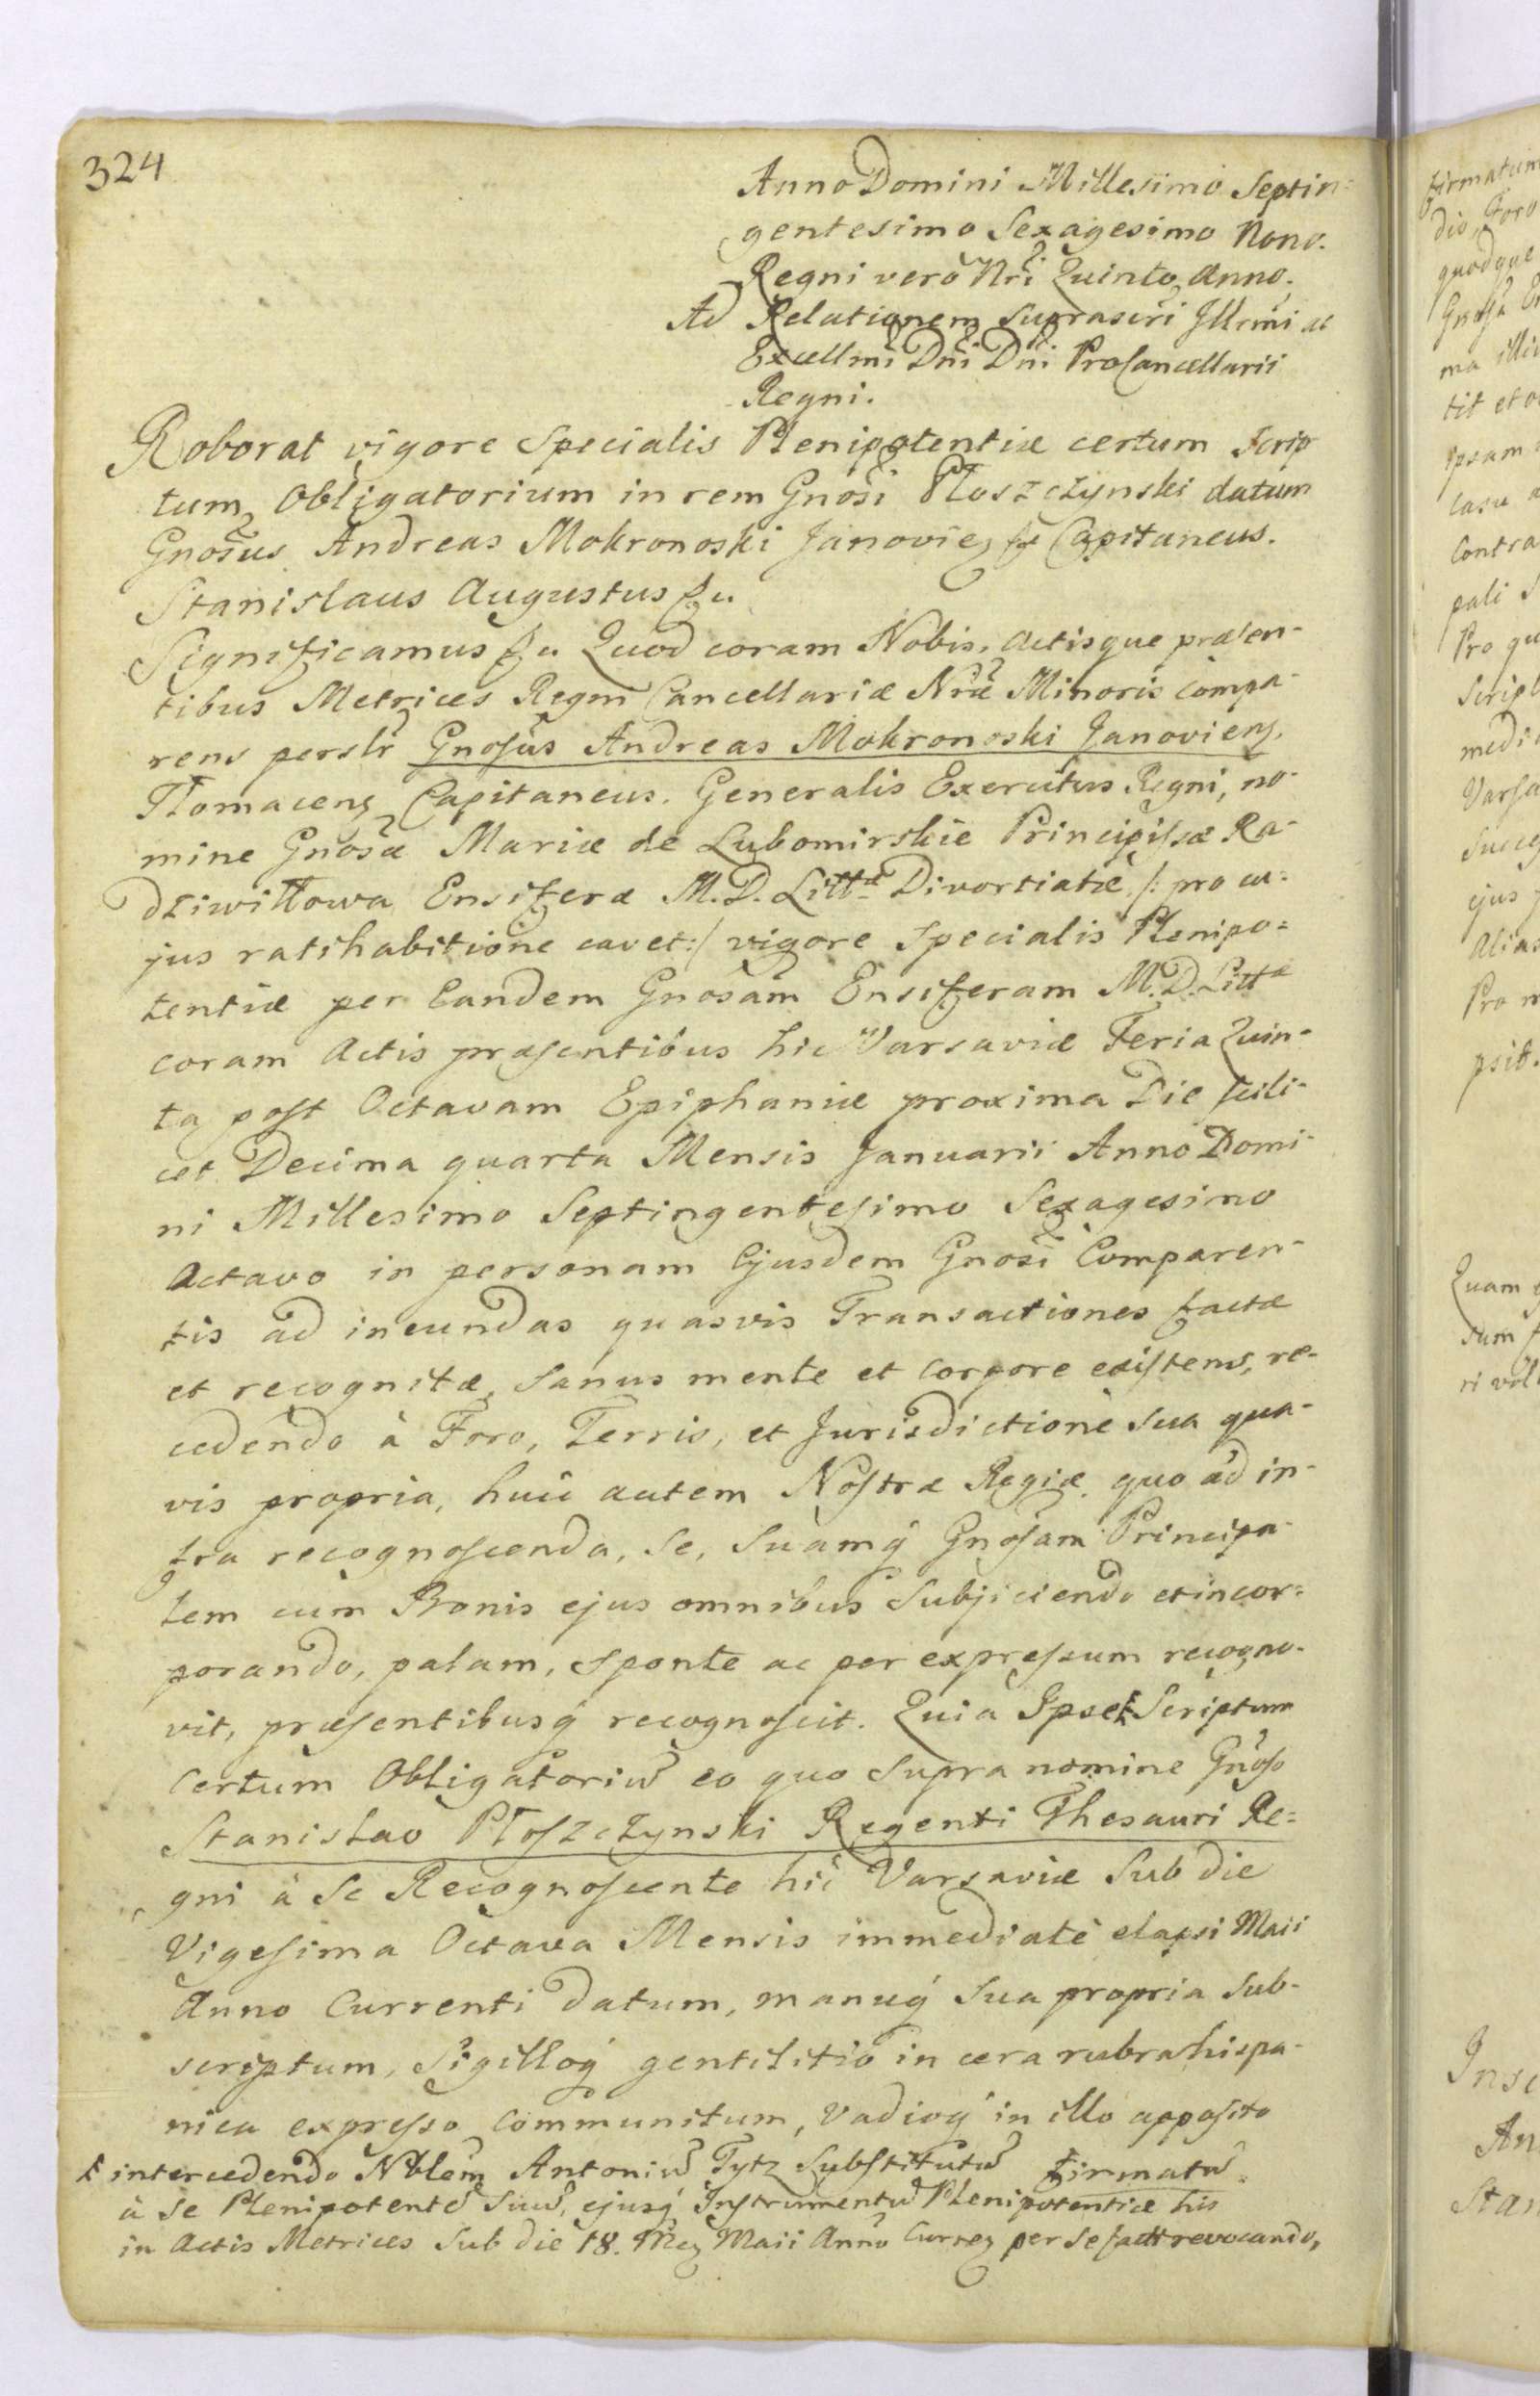 324
Anno Domini Millesimo Septin=
gentesimo Sexagesimo Nono.
Regni vero Nri Quinto Anno.
Ad Relationem Suprascri Illrmi ac
Excellmi Dni Dni ProCancellarii
Regni.
Roborat vigore Specialis Plenipotentiæ certum Scrip
tum Obligatorium in rem Gnosi Płoszczynski datum
Gnosus Andreas Mokronoski Janovien &c Capitaneus.
Stanislaus Augustus &c.
Significamus &c. Quod coram Nobis, Actisque præsen-
tibus Metrices Regni Cancellariæ Nræ Minoris compa-
rens perslr Gnosus Andreas Mokronoski Janovien,
Tłomacen Capitaneus. Generalis Exercitus Regni, no-
mine Gnosæ Mariæ de Lubomirskie Principissæ Ra-
dziwiłłowa Ensiferæ M. D. Littæ Divortiatæ /: pro cu-
jus ratihabitione cavet :/ vigore Specialis Plenipo=
tentiæ per Eandem Gnosam Ensiferam M. D. Littæ
coram Actis præsentibus hic Varsaviæ Feria Quin-
ta post Octavam Epiphaniæ proxima Die scili-
cet Decima quarta Mensis Januarii Anno Domi-
ni Millesimo Septingentesimo Sexagesimo
Octavo in personam Ejusdem Gnosi Comparen-
tis ad ineundas quasvis Transactiones factæ
et recognitæ, Sanus mente et Corpore existens, re-
cedendo à Foro, Terris, et Jurisdictione Sua qua-
vis propria, huic autem Nostræ Regiæ quo ad in-
fra recognoscenda, Se, Suamq Gnosam Principa-
lem cum Bonis ejus omnibus Subjiciendo et incor=
porando, palam, Sponte ac per expressum recogno-
vit, præsentibusq recognoscit. Quia Ipse ŧ Scriptum
Certum Obligatoriu eo quo Supra nomine Gnoso
Stanislao Płoszczynski Regenti Thesauri Re=
gni à Se Recognoscente hic Varsaviæ Sub die
Vigesima Octava Mensis immediate elapsi Maii
Anno Currenti datum, manuq Sua propria Sub-
scriptum, Sigilloq gentilitio in cera rubra hispa-
nica expresso Communitum, Vadioq in illo apposito
firmatu
ŧ intercedendo Nblem Antoniu Tytz Substitutu
à Se Plenipotente Suu, ejusq Instrumentu Plenipotentiæ his
in Actis Metrices Sub die 18. Mens Maii Anno Curren per Se fact revocando,